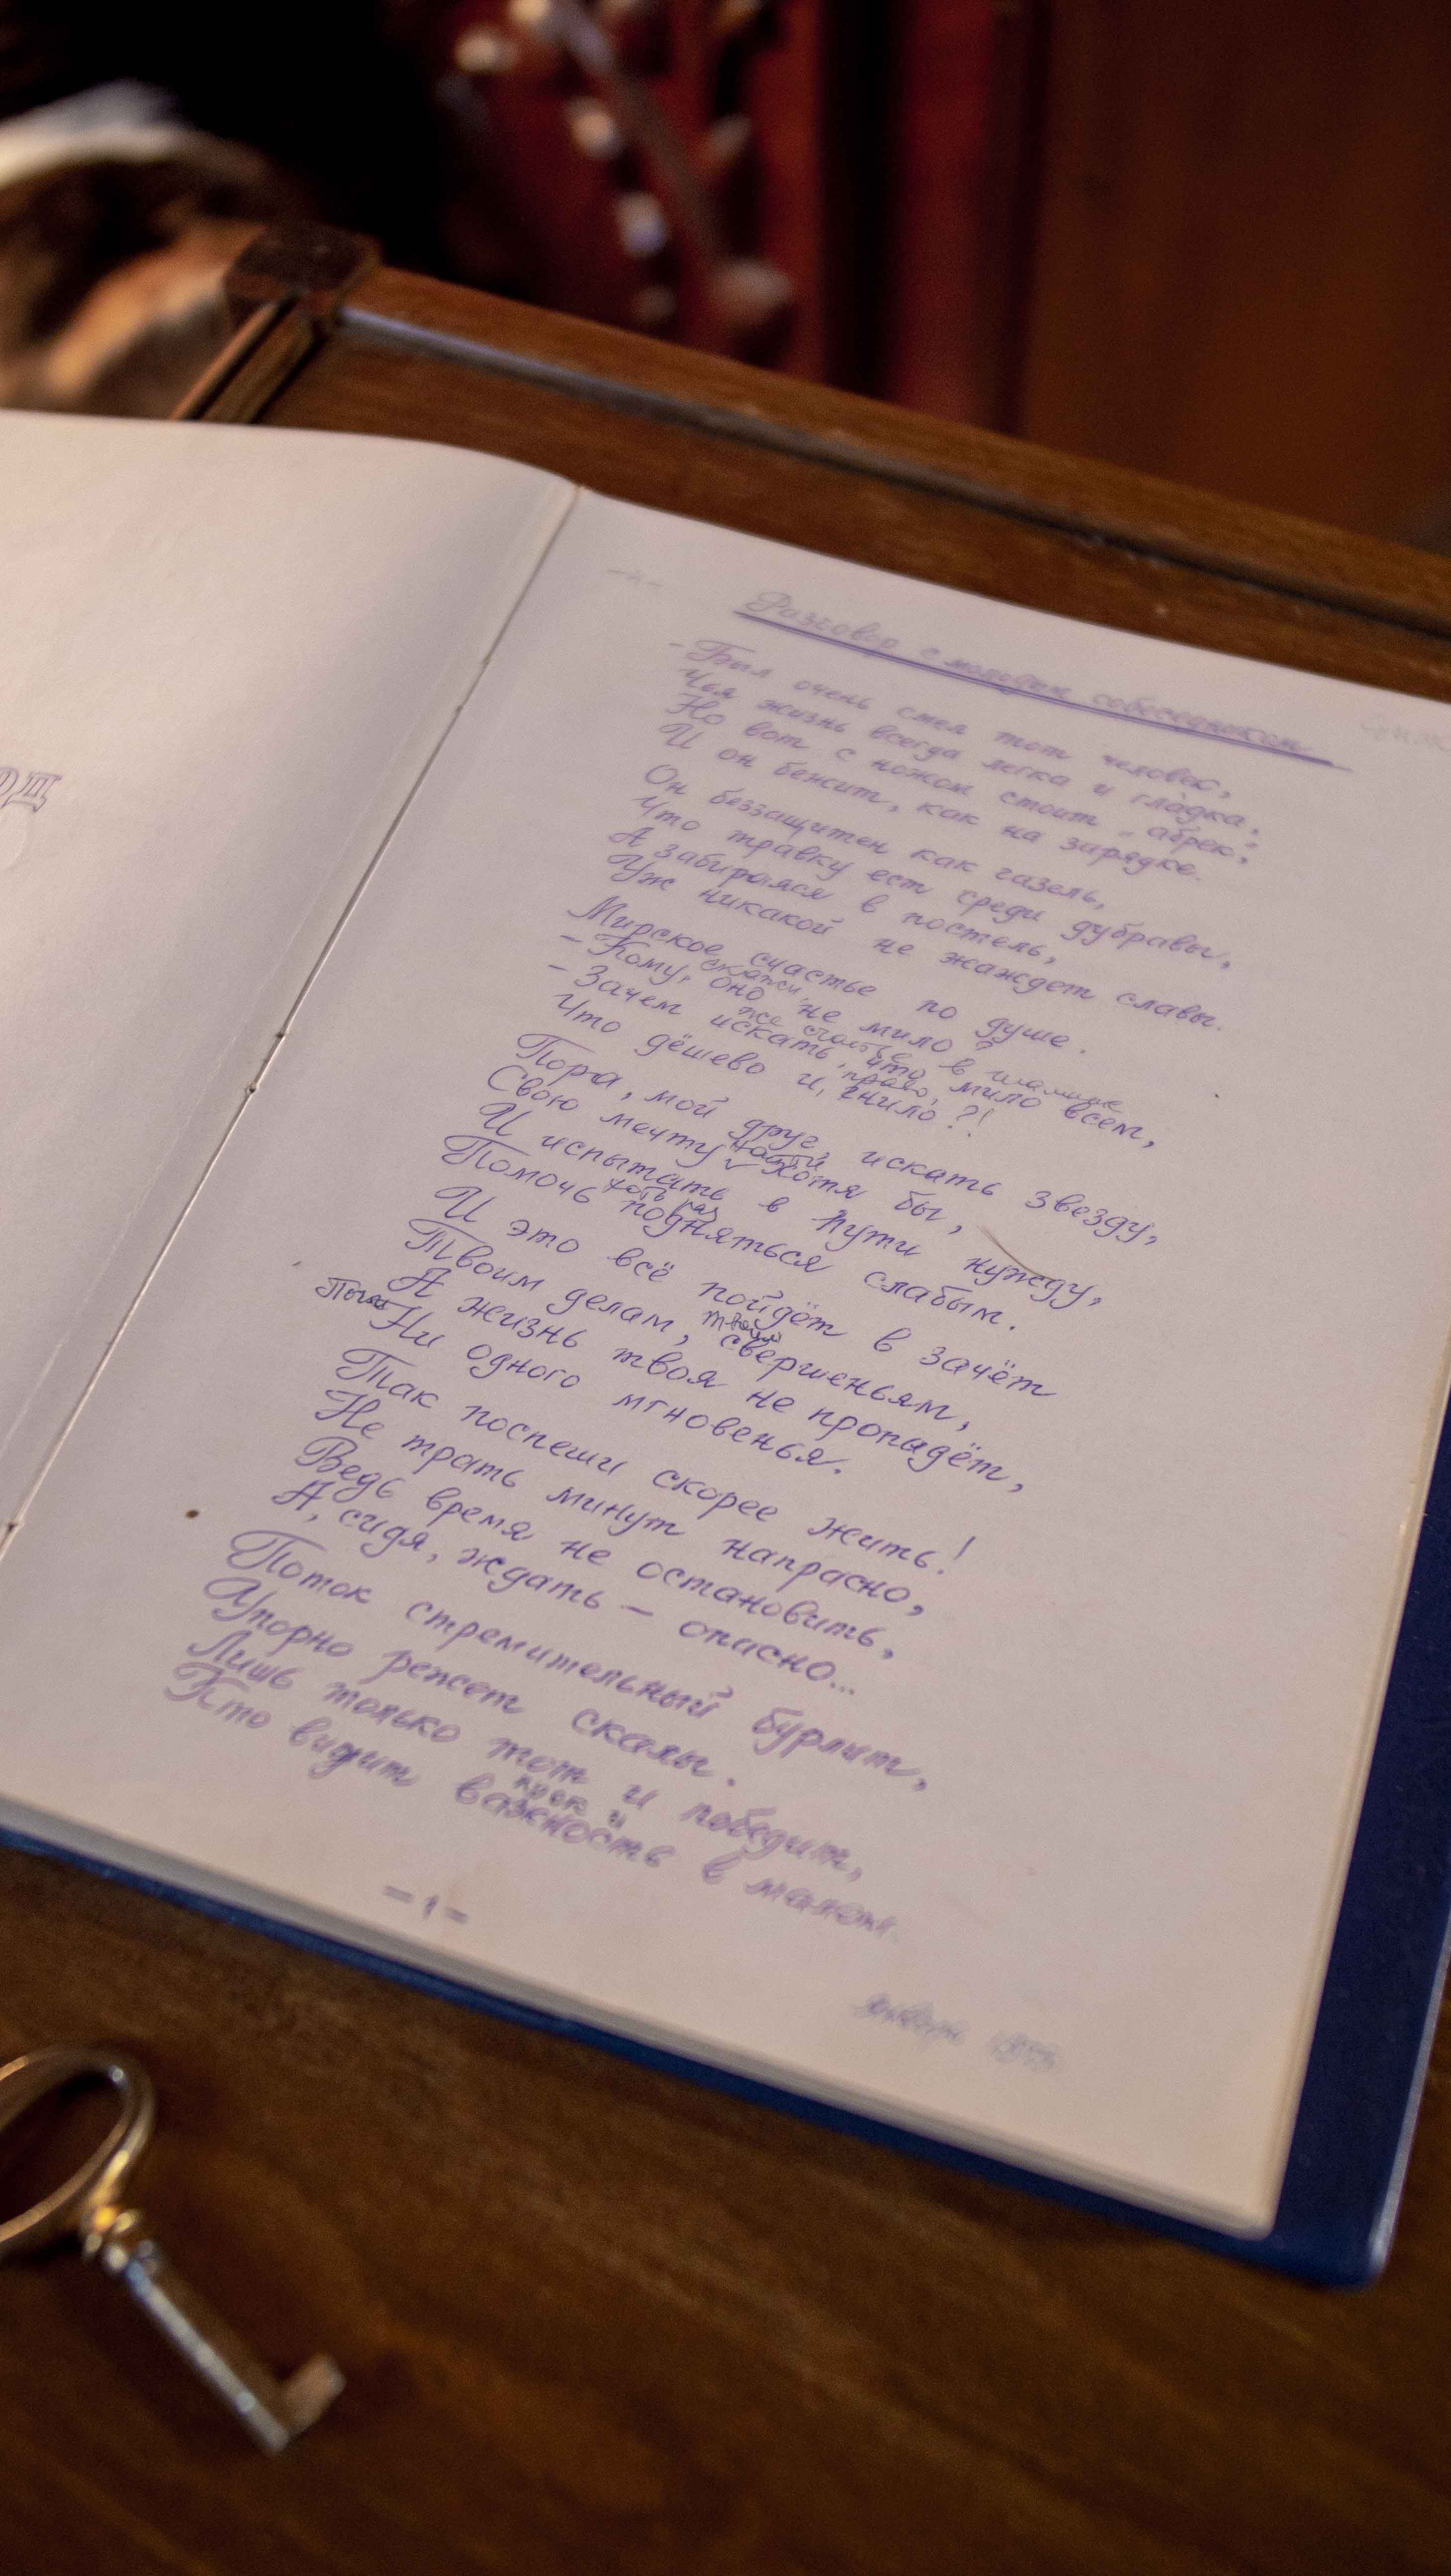 Разговор с молодым собеседником
- Был очень смел тот человек,
Чья жизнь всегда легка и гладка.
Но вот с ножом стоит „абрек“,
И он бежит, как на зарядке.
Он беззащитен как газель,
Что травку ест среди дубравы,
А забираяся в постель,
Уж никакой не жаждет славы.
Мирское счастье по душе.
скажи,
- Кому, оно не мило?
же счастье в шалаше
- Зачем искать, что мило всем,
право,
Что дёшево и, гнило?!
Пора, мой друг, искать звезду,
найти
Свою мечту хотя бы,
И испытать в пути нужду,
хоть раз
Помочь подняться слабым.
И это всё пойдёт в зачёт
твоим
Твоим делам, свершеньям,
А жизнь твоя не пропадёт,
Ни одного мгновенья.
Так поспеши скорее жить!
Не трать минут напрасно,
Ведь время не остановить,
А, сидя, ждать – опасно...
Поток стремительный бурлит,
Упорно режет скалы.
Лишь только тот и победит,
Кто видит важность в малом.
- 1 -
январь